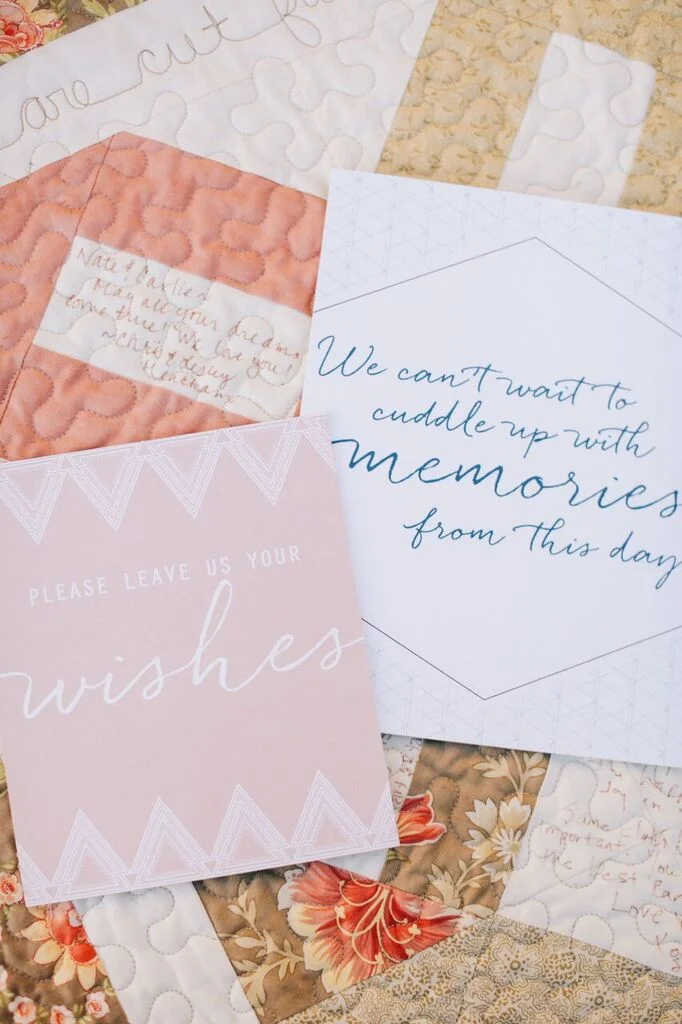 are cut
Nate & Darlien
May all your dreams
come true! We love you!
~Chris & Lesley
We can't wait to
cuddle up with
memories
from this day
PLEASE LEAVE US YOUR
wishes
day in
important
this best
Love